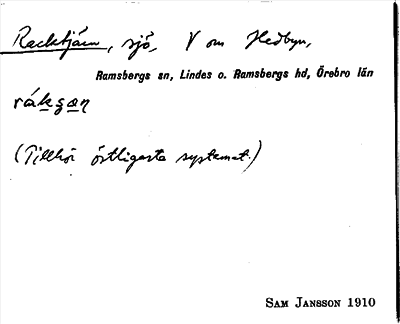 Racktjärn, sjö, V om Hedbyn,
Ramsbergs sn, Lindes o. Ramsbergs hd, Örebro län
rákgan
(Tillhör östligaste systemet.)
Sam Jansson 1910